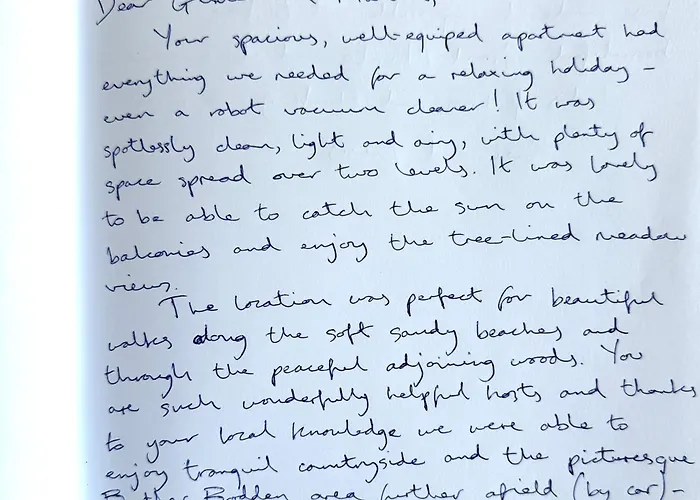 Dear
Your spacious, well-equiped apartment had
everything we needed for a relaxing holiday –
even a robot vacuum cleaner! It was
spotlessly clean, light and airy, with plenty of
space spread over two levels. It was lovely
to be able to catch the sun on the
balconies and enjoy the tree-lined meadow
views.
The location was perfect for beautiful
walks along the soft sandy beaches and
through the peaceful adjoining woods. You
are such wonderfully helpful hosts and thanks
to your local knowledge we were able to
enjoy tranquil countryside and the picturesque
Bodden area further afield (by car) –